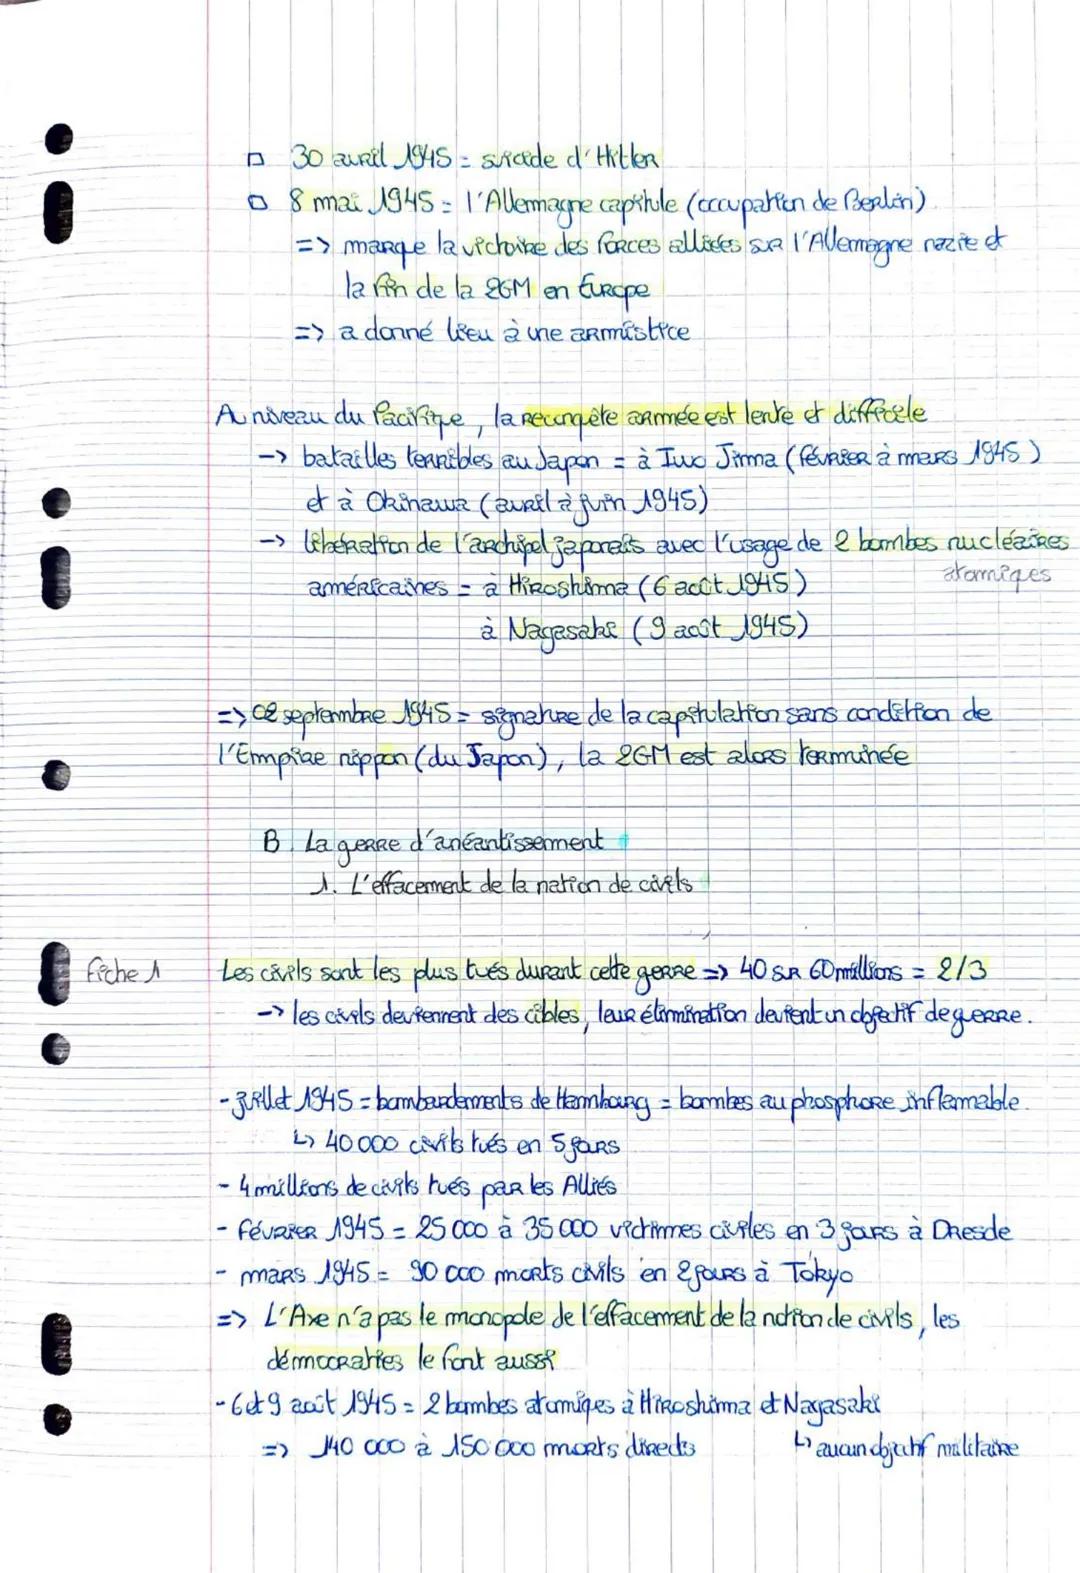 30 avril 1945 = suicide d'Hitler
8 mai 1945 = l'Allemagne capitule (occupation de Berlin)
=> marque la victoire des forces alliées sur l'Allemagne nazie et
la fin de la 2GM en Europe
=> a donné lieu à une armistice
Au niveau du Pacifique, la reconquête armée est lente et difficile
-> batailles terribles au Japon = à Iwo Jimma (février à mars 1945)
et à Okinawa (avril à juin 1945)
-> libération de l'archipel japonais avec l'usage de 2 bombes nucléaires
atomiques
américaines = à Hiroshima (6 août 1945)
à Nagasaki (9 août 1945)
=> 02 septembre 1945 = signature de la capitulation sans condition de
l'Empire nippon (du Japon), la 2GM est alors terminée
B. La guerre d'anéantissement
1. L'effacement de la nation de civils
fiche 1
Les civils sont les plus tués durant cette guerre => 40 sur 60 millions = 2/3
-> les civils deviennent des cibles, leur élimination devient un objectif de guerre.
- juillet 1945 = bombardements de Hambourg = bombes au phosphore inflammable.
↳ 40 000 civils tués en 5 jours
- 4 millions de civils tués par les Alliés
- février 1945 = 25 000 à 35 000 victimes civiles en 3 jours à Dresde
- mars 1945 = 90 000 morts civils en 2 jours à Tokyo
=> L'Axe n'a pas le monopole de l'effacement de la notion de civils, les
démocraties le font aussi
- 6 et 9 août 1945 = 2 bombes atomiques à Hiroshima et Nagasaki
=> 140 000 à 150 000 morts directs ↳ aucun objectif militaire